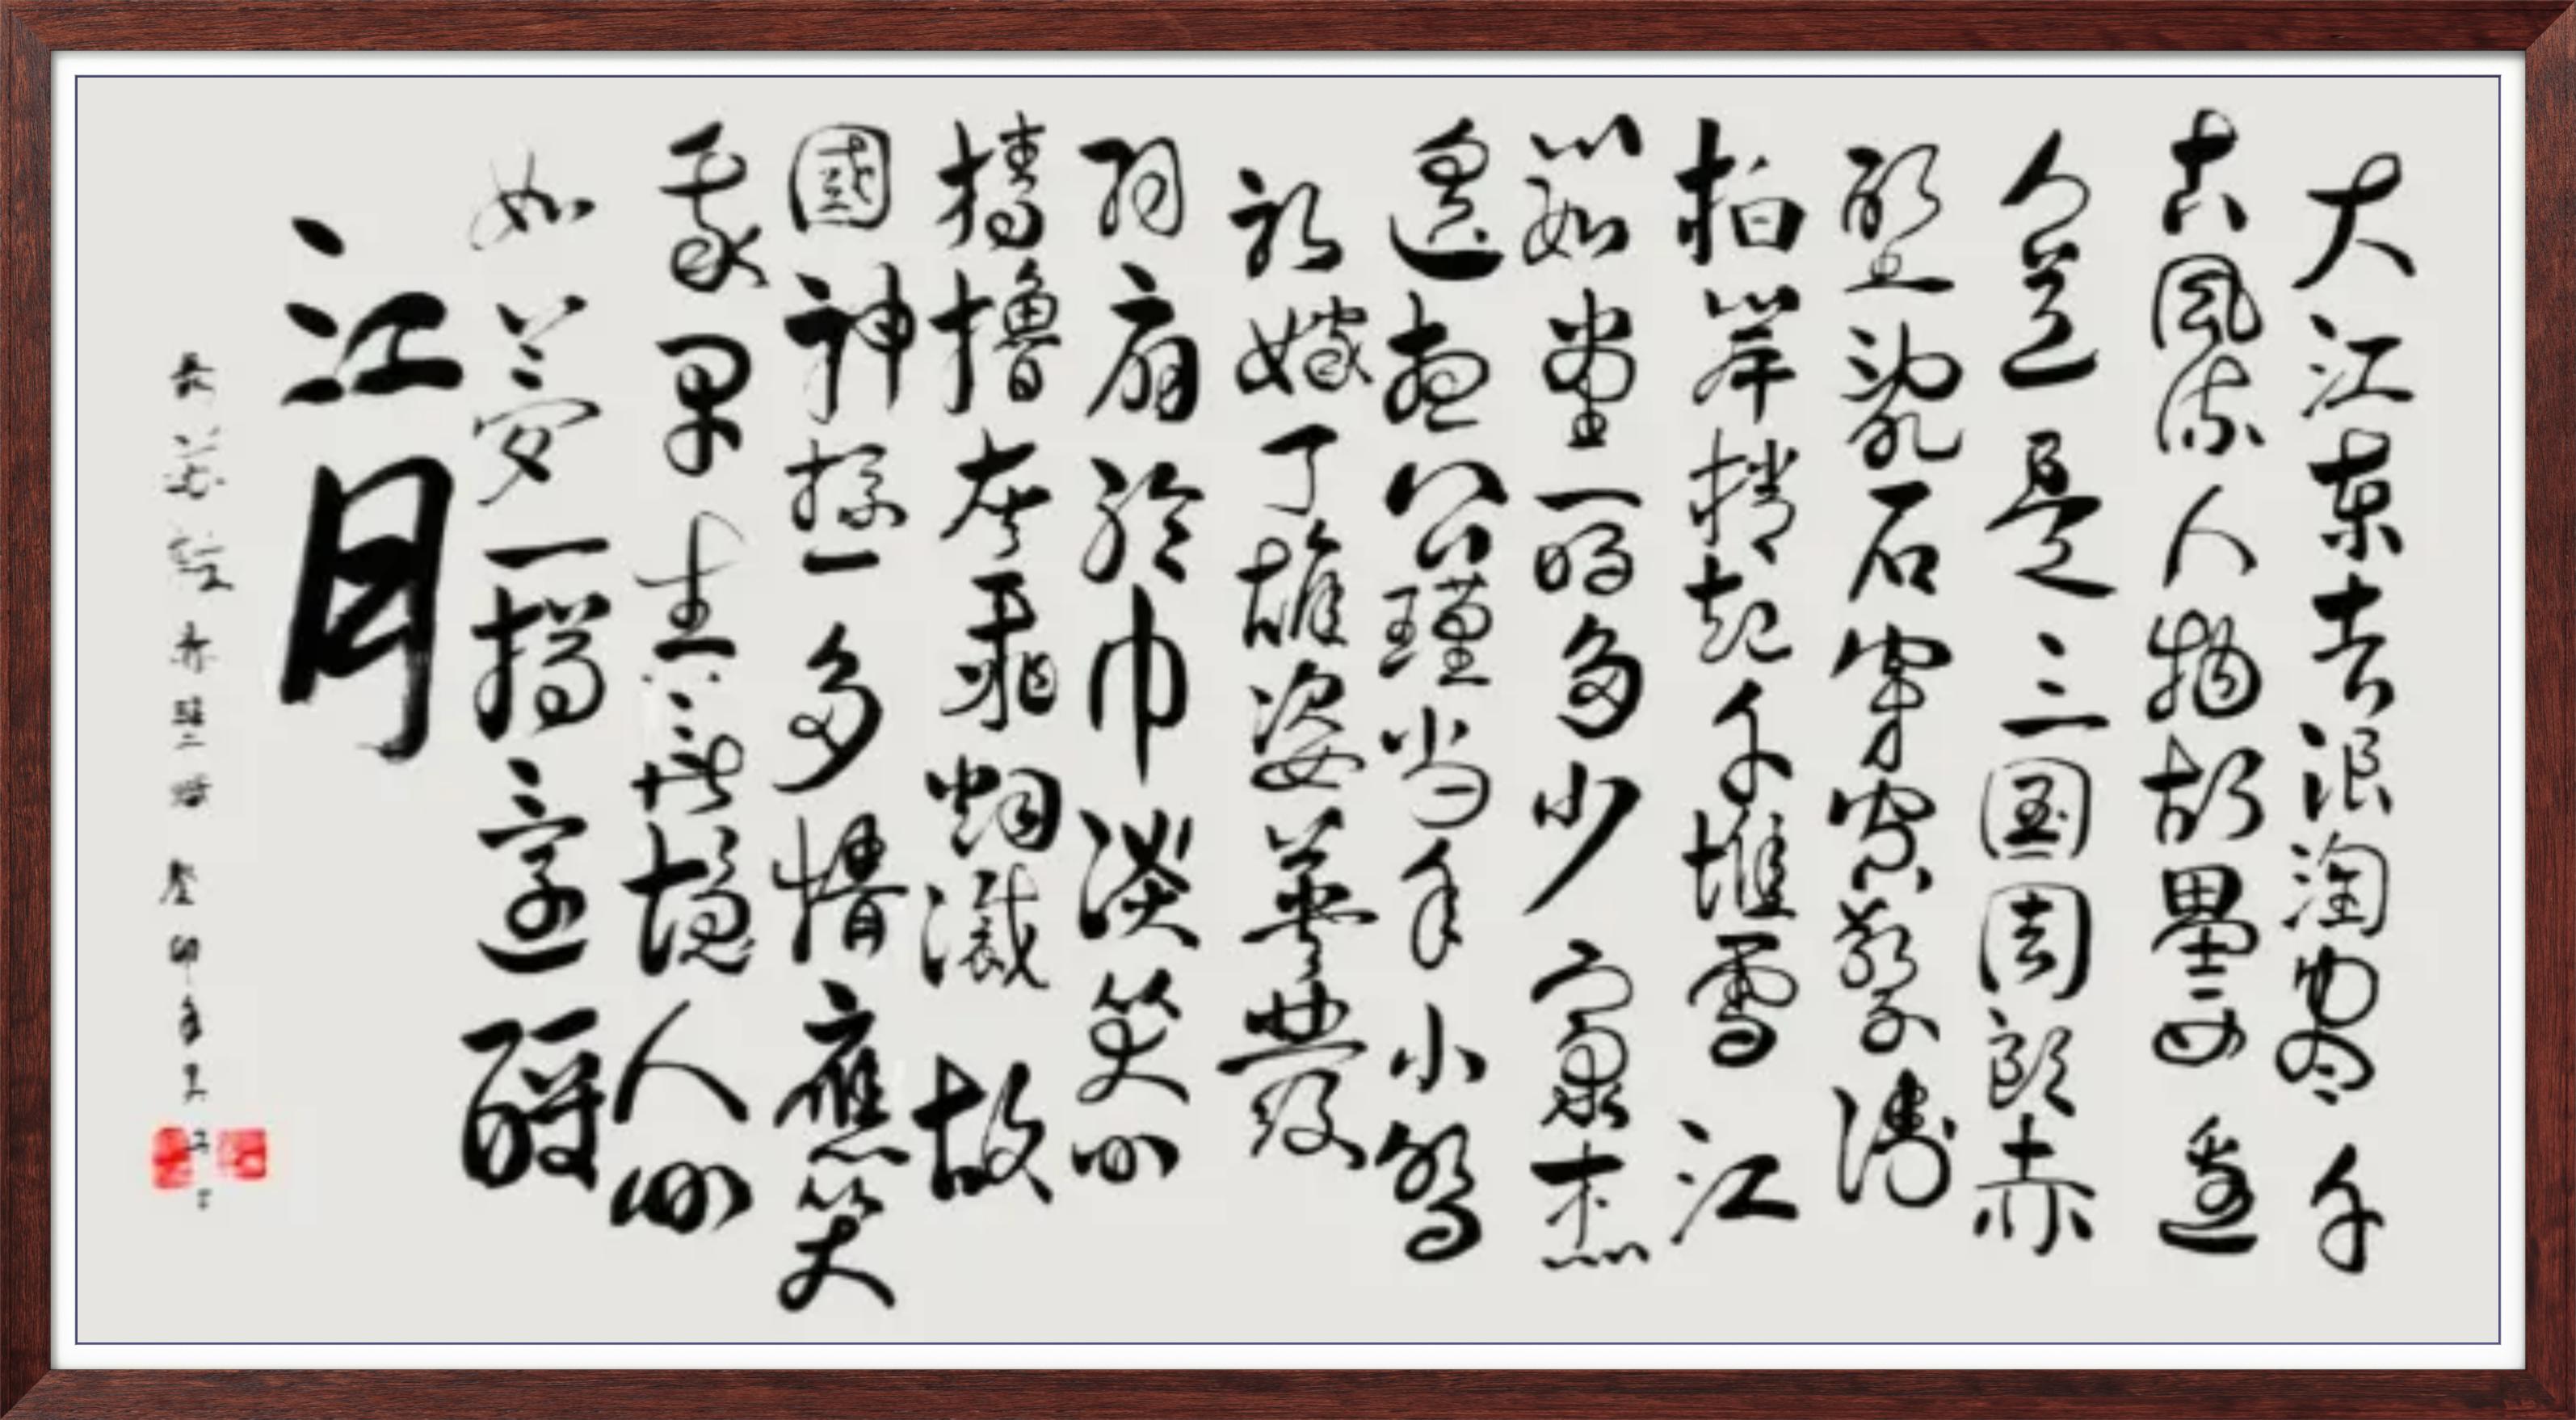 大江东去浪淘尽千
古風流人物故壘西邊
人道是三国周郎赤
壁亂石穿空驚濤
拍岸捲起千堆雪江
山如畫一時多少豪杰
遙想公瑾当年小喬
初嫁了雄姿英發
羽扇綸巾淡笑间
檣櫓灰飛烟滅故
國神遊一多情應笑
我早生人间
如夢一樽還酹
江月
苏轼赤壁 卯年